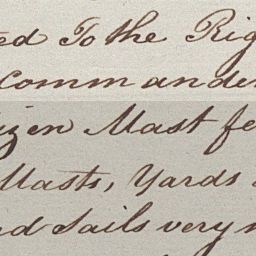 ed To the Rig
Commander
izen Mast fe
Masts, Yards
nd Sails very